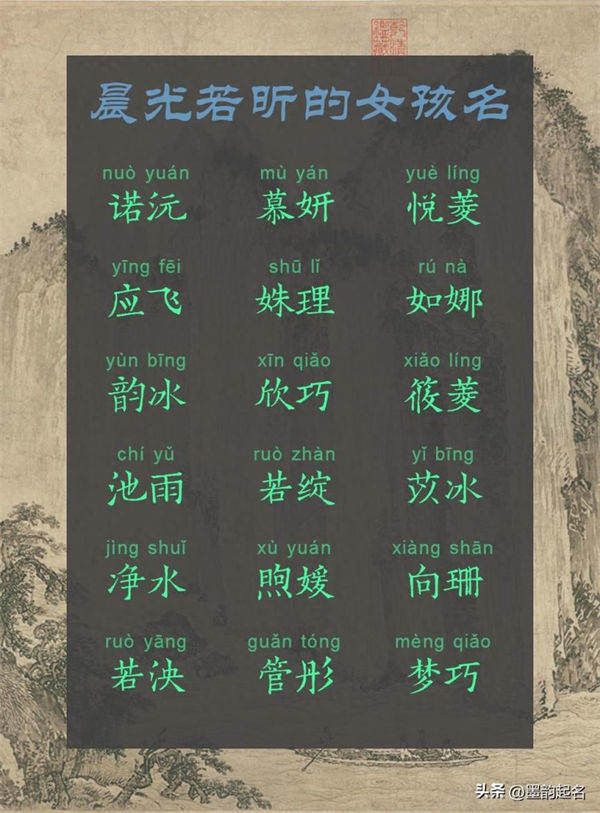 晨光若昕的女孩名
nuò yuán mù yán yuè líng
诺沅 慕妍 悦菱
yīng fēi shū lǐ rú nà
应飞 姝理 如娜
yùn bīng xīn qiǎo xiǎo líng
韵冰 欣巧 筱菱
chí yǔ ruò zhàn yǐ bīng
池雨 若绽 苡冰
jìng shuǐ xù yuán xiàng shān
净水 煦媛 向珊
ruò yāng guǎn tóng mèng qiǎo
若泱 管彤 梦巧
头条 @墨韵起名